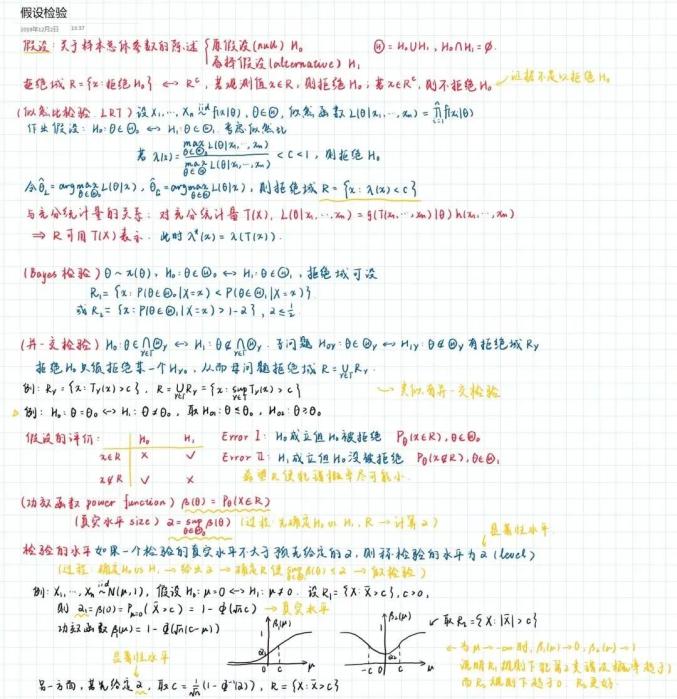 假设检验
2019年12月2日 13:37
假设：关于样本总体参数的陈述 { 原假设(null) H₀ Θ = H₀∪H₁, H₀∩H₁ = ∅.
备择假设(alternative) H₁
拒绝域 R = {x: 拒绝 H₀} ↔ Rᶜ, 若观测值 x∈R, 则拒绝 H₀; 若 x∈Rᶜ, 则不拒绝 H₀ 证据不足以拒绝 H₀
(似然比检验 LRT) 设 X₁,…,Xₙ iid~ f(x|θ), θ∈Θ, 似然函数 L(θ|x₁,…,xₙ) = ∏ᵢ₌₁ⁿ f(xᵢ|θ)
作出假设: H₀: θ∈Θ₀ ↔ H₁: θ∈Θ₁. 考虑似然比
若 λ(x) = max_{θ∈Θ₀} L(θ|x₁,…,xₙ) / max_{θ∈Θ} L(θ|x₁,…,xₙ) < C < 1, 则拒绝 H₀
则拒绝域 R = {x: λ(x) < c}
与充分统计量的关系: 对充分统计量 T(X), L(θ|x₁,…,xₙ) = g(T(x₁,…,xₙ)|θ) h(x₁,…,xₙ)
⇒ R 可用 T(X) 表示. 此时 λ*(x) = λ(T(x)).
(Bayes 检验) θ ~ π(θ), H₀: θ∈Θ₀ ↔ H₁: θ∈Θ₁, 拒绝域可设
R₁ = {x: P(θ∈Θ₀|X=x) < P(θ∈Θ₁|X=x)}
或 R₂ = {x: P(θ∈Θ₁|X=x) > 1-α}, α ≤ ½
(并-交检验) H₀: θ∈⋂_{γ∈Γ} Θγ ↔ H₁: θ∉⋂_{γ∈Γ} Θγ. 子问题 H₀γ: θ∈Θγ ↔ H₁γ: θ∉Θγ 有拒绝域 Rγ
拒绝 H₀ 只须拒绝某一个 H₀, 从而母问题拒绝域 R = ⋃_{γ∈Γ} Rγ.
例: Rγ = {x: Tγ(x) > c}, R = ⋃_{γ∈Γ} Rγ = {x: sup_{γ∈Γ} Tγ(x) > c} 类似有并-交检验
例: H₀: θ=θ₀ ↔ H₁: θ≠θ₀, 取 H₀₁: θ≤θ₀, H₀₂: θ≥θ₀
假设的评价: H₀ H₁ Error Ⅰ: H₀ 成立但 H₀ 被拒绝 P_θ(X∈R), θ∈Θ₀
x∈R × ✓ Error Ⅱ: H₁ 成立但 H₀ 没被拒绝 P_θ(X∉R), θ∈Θ₁
x∉R ✓ × 希望 R 使犯错概率尽可能小
(功效函数 power function) β(θ) = P_θ(X∈R)
(真实水平 size) α = sup_{θ∈Θ₀} β(θ) (过程: 先确定 H₀ vs H₁, R → 计算 α)
显著性水平
检验的水平 如果一个检验的真实水平不大于预先给定的 α, 则称检验的水平为 α (level)
(过程: 确定 H₀ vs H₁ → 给出 α → 确定 R 使 sup_{θ∈Θ₀} β(θ) ≤ α → 做检验)
例: X₁,…,Xₙ iid~ N(μ,1), 假设 H₀: μ=0 ↔ H₁: μ≠0. 设 R₁ = {X: X̄ > c}, c>0,
则 α₁ = β₁(0) = P_{μ=0}(X̄ > c) = 1 - Φ(√n c) → 真实水平
功效函数 β₁(μ) = 1 - Φ(√n(c-μ)) β₁(μ) α₁ 0 c μ β₂(μ) α₂ 0 c μ 取 R₂ = {X: |X̄| > c}
← 当 μ→-∞ 时, β₁(μ)→0, β₂(μ)→1
说明 R₁ 规则下犯第2类错误概率趋于1
而 R₂ 规则下趋于0. R₂ 更好.
显著性水平
另一方面, 若先给定 α, 取 c = 1/√n (1-Φ⁻¹(α)), R = {X: X̄ > c}